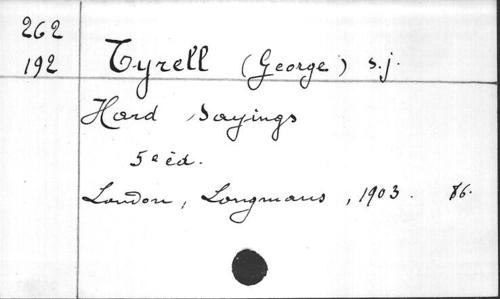 262
192
Tyrell (George) s.j.
Hard Sayings
5e éd.
London, Longmans, 1903. 86.